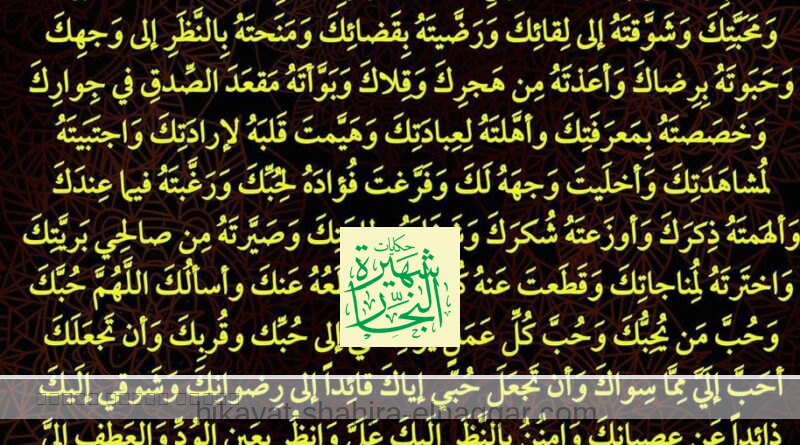 وَمَحَبَّتِكَ وَشَوَّقتَهُ إلى لِقائِكَ وَرَضَّيتَهُ بِقَضائِكَ وَمَنَحتَهُ بِالنَّظَرِ إلى وَجهِكَ
وَحَبَوتَهُ بِرِضاكَ وَأَعَذتَهُ مِن هَجرِكَ وَقِلاكَ وَبَوَّأتَهُ مَقعَدَ الصِّدقِ في جِوارِكَ
وَخَصَصتَهُ بِمَعرَفَتِكَ وأهَّلتَهُ لِعِبادَتِكَ وَهَيَّمتَ قَلبَهُ لإرادَتِكَ وَاجتَبَيتَهُ
لمُشاهَدَتِكَ وَأخلَيتَ وَجهَهُ لَكَ وَفَرَّغتَ فُؤادَهُ لِحُبِّكَ وَرَغَّبتَهُ فيما عِندَكَ
وَألهَمتَهُ ذِكرَكَ وَأوزَعتَهُ شُكرَكَ وَصَيَّرتَهُ مِن صالِحي بَريَّتِكَ
وَاختَرتَهُ لِمُناجاتِكَ وَقَطَعتَ عَنهُ عَنكَ وأسألُكَ اللَّهُمَّ حُبَّكَ
وَحُبَّ مَن يُحِبُّكَ وَحُبَّ كُلِّ عَمَلٍ إلى حُبِّك وقُربِكَ وَأن تَجعَلَكَ
أحَبَّ إلَيَّ مِمَّا سِواكَ وَأن تَجعَلَ حُبِّي إياكَ قائِداً إلى رِضوانِكَ وَشَوقي إلَيكَ
ذائِداً عَن عِصيانِكَ وَامنُن بِالنَّظَرِ إلَيكَ عَلَيَّ وَانظُر بِعَينِ الوُدِّ وَالعَطفِ إلَيَّ
حكايات
شهيرة
النجار
hikayat-shahira-elnaggar.com